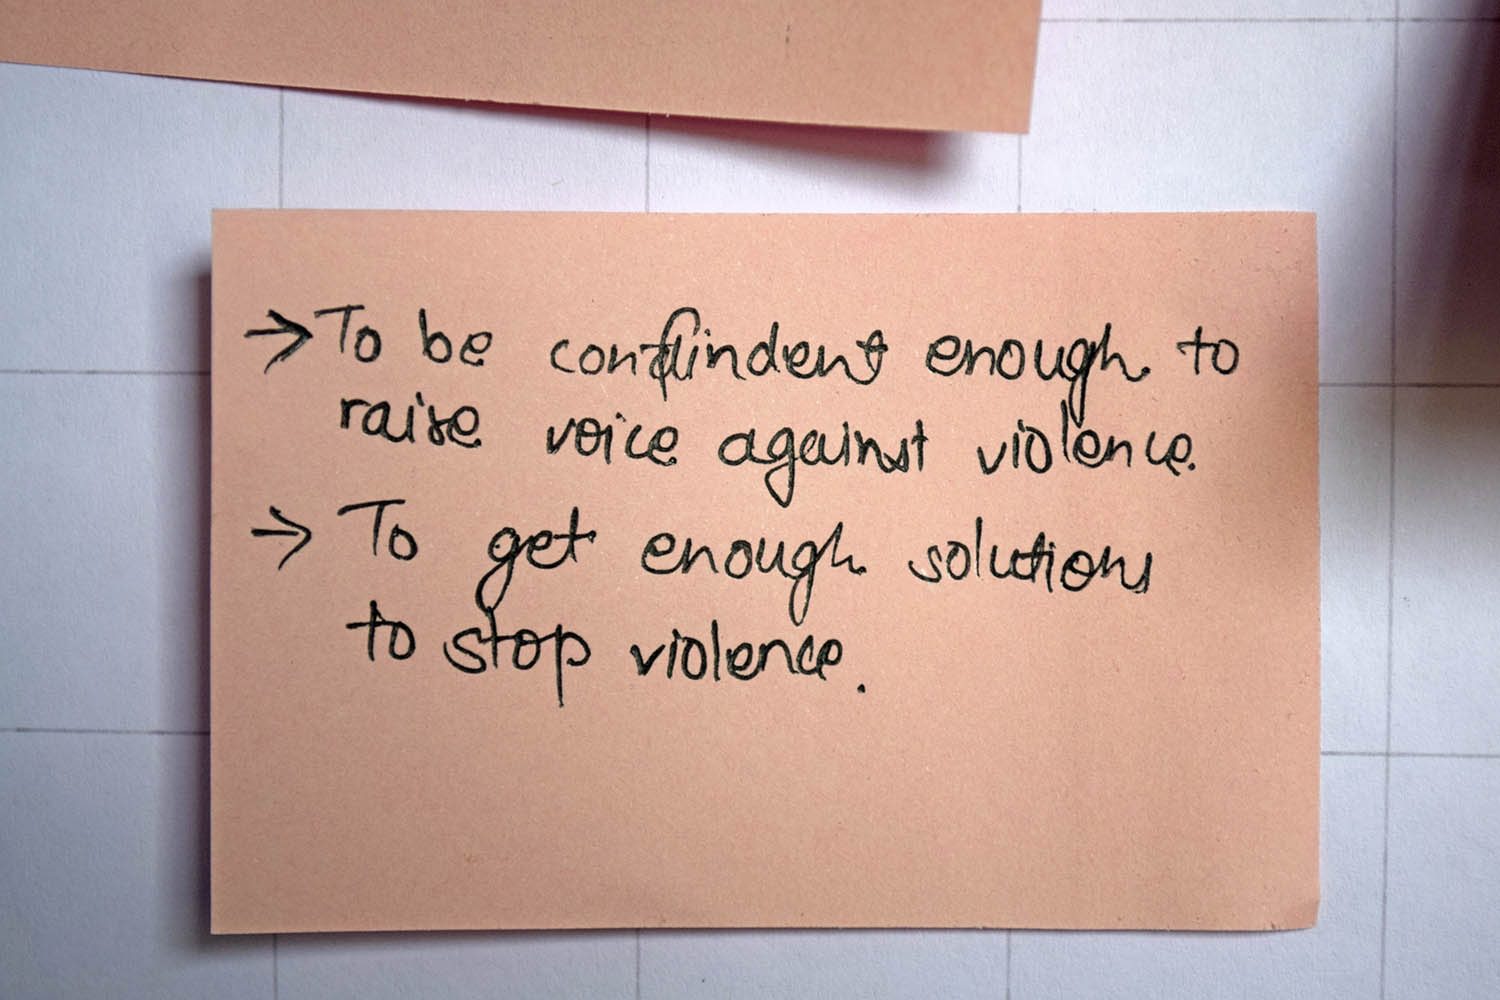 → To be confindent enough to
raise voice against violence.
→ To get enough solutions
to stop violence.